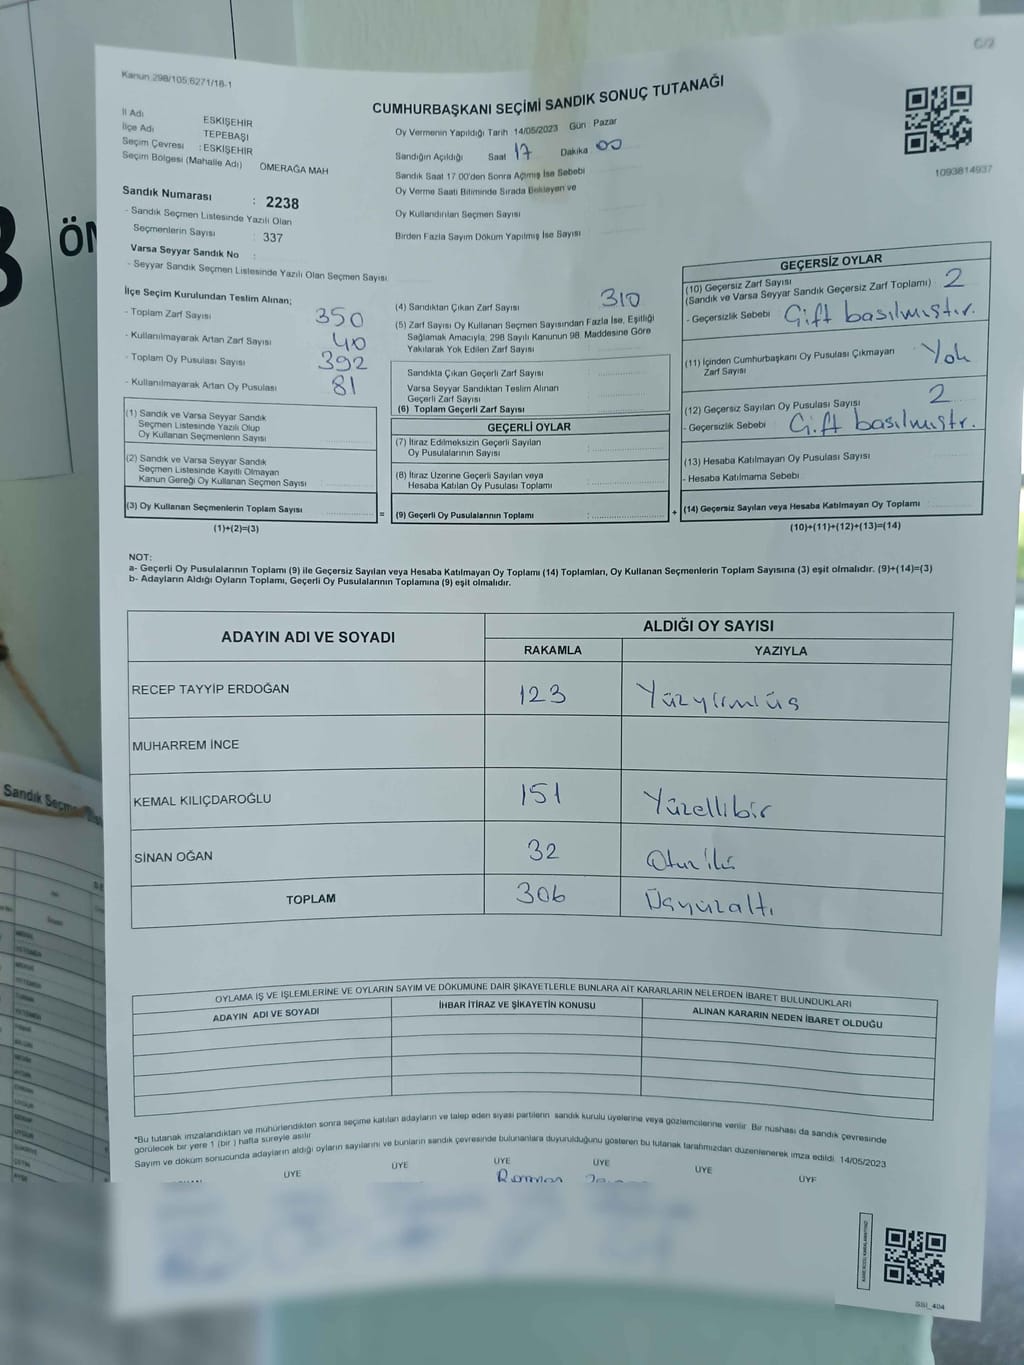 Kanun:298/105;6271/18-1
CUMHURBAŞKANI SEÇİMİ SANDIK SONUÇ TUTANAĞI
1093814937
İl Adı ESKİŞEHİR
İlçe Adı TEPEBAŞI
Seçim Çevresi : ESKİŞEHİR
Seçim Bölgesi (Mahalle Adı) ÖMERAĞA MAH
Sandık Numarası : 2238
- Sandık Seçmen Listesinde Yazılı Olan
Seçmenlerin Sayısı : 337
Varsa Seyyar Sandık No :
- Seyyar Sandık Seçmen Listesinde Yazılı Olan Seçmen Sayısı
Oy Vermenin Yapıldığı Tarih 14/05/2023 Gün Pazar
Sandığın Açıldığı Saat 17 Dakika 00
Sandık Saat 17.00'den Sonra Açılmış İse Sebebi
Oy Verme Saati Bitiminde Sırada Bekleyen ve
Oy Kullandırılan Seçmen Sayısı
Birden Fazla Sayım Döküm Yapılmış İse Sayısı
İlçe Seçim Kurulundan Teslim Alınan;
- Toplam Zarf Sayısı 350
- Kullanılmayarak Artan Zarf Sayısı 40
- Toplam Oy Pusulası Sayısı 392
- Kullanılmayarak Artan Oy Pusulası 81
(1) Sandık ve Varsa Seyyar Sandık
Seçmen Listesinde Yazılı Olup
Oy Kullanan Seçmenlerin Sayısı
(2) Sandık ve Varsa Seyyar Sandık
Seçmen Listesinde Kayıtlı Olmayan
Kanun Gereği Oy Kullanan Seçmen Sayısı
(3) Oy Kullanan Seçmenlerin Toplam Sayısı
(1)+(2)=(3)
(4) Sandıktan Çıkan Zarf Sayısı 310
(5) Zarf Sayısı Oy Kullanan Seçmen Sayısından Fazla İse, Eşitliği
Sağlamak Amacıyla, 298 Sayılı Kanunun 98. Maddesine Göre
Yakılarak Yok Edilen Zarf Sayısı
Sandıkta Çıkan Geçerli Zarf Sayısı
Varsa Seyyar Sandıktan Teslim Alınan
Geçerli Zarf Sayısı
(6) Toplam Geçerli Zarf Sayısı
GEÇERLİ OYLAR
(7) İtiraz Edilmeksizin Geçerli Sayılan
Oy Pusulalarının Sayısı
(8) İtiraz Üzerine Geçerli Sayılan veya
Hesaba Katılan Oy Pusulası Toplamı
=
(9) Geçerli Oy Pusulalarının Toplamı
+
GEÇERSİZ OYLAR
(10) Geçersiz Zarf Sayısı
(Sandık ve Varsa Seyyar Sandık Geçersiz Zarf Toplamı) 2
- Geçersizlik Sebebi Çift basılmıştır.
(11) İçinden Cumhurbaşkanı Oy Pusulası Çıkmayan
Zarf Sayısı Yok
(12) Geçersiz Sayılan Oy Pusulası Sayısı 2
- Geçersizlik Sebebi Çift basılmıştr.
(13) Hesaba Katılmayan Oy Pusulası Sayısı
- Hesaba Katılmama Sebebi
(14) Geçersiz Sayılan veya Hesaba Katılmayan Oy Toplamı
(10)+(11)+(12)+(13)=(14)
NOT:
a- Geçerli Oy Pusulalarının Toplamı (9) ile Geçersiz Sayılan veya Hesaba Katılmayan Oy Toplamı (14) Toplamları, Oy Kullanan Seçmenlerin Toplam Sayısına (3) eşit olmalıdır. (9)+(14)=(3)
b- Adayların Aldığı Oyların Toplamı, Geçerli Oy Pusulalarının Toplamına (9) eşit olmalıdır.
ADAYIN ADI VE SOYADI ALDIĞI OY SAYISI
RAKAMLA YAZIYLA
RECEP TAYYİP ERDOĞAN 123
MUHARREM İNCE
KEMAL KILIÇDAROĞLU 151 Yüzellibir
SİNAN OĞAN 32 Otuziki
TOPLAM 306 Üçyüzaltı
OYLAMA İŞ VE İŞLEMLERİNE VE OYLARIN SAYIM VE DÖKÜMÜNE DAİR ŞİKAYETLERLE BUNLARA AİT KARARLARIN NELERDEN İBARET BULUNDUKLARI
ADAYIN ADI VE SOYADI İHBAR İTİRAZ VE ŞİKAYETİN KONUSU ALINAN KARARIN NEDEN İBARET OLDUĞU
*Bu tutanak imzalandıktan ve mühürlendikten sonra seçime katılan adayların ve talep eden siyasi partilerin sandık kurulu üyelerine veya gözlemcilerine verilir. Bir nüshası da sandık çevresinde
görülecek bir yere 1 (bir) hafta süreyle asılır
Sayım ve döküm sonucunda adayların aldığı oyların sayılarını ve bunların sandık çevresinde bulunanlara duyurulduğunu gösteren bu tutanak tarafımızdan düzenlenerek imza edildi. 14/05/2023
ÜYE ÜYE ÜYE ÜYE ÜYE ÜYE
SSI_404
Sandık Seçmen